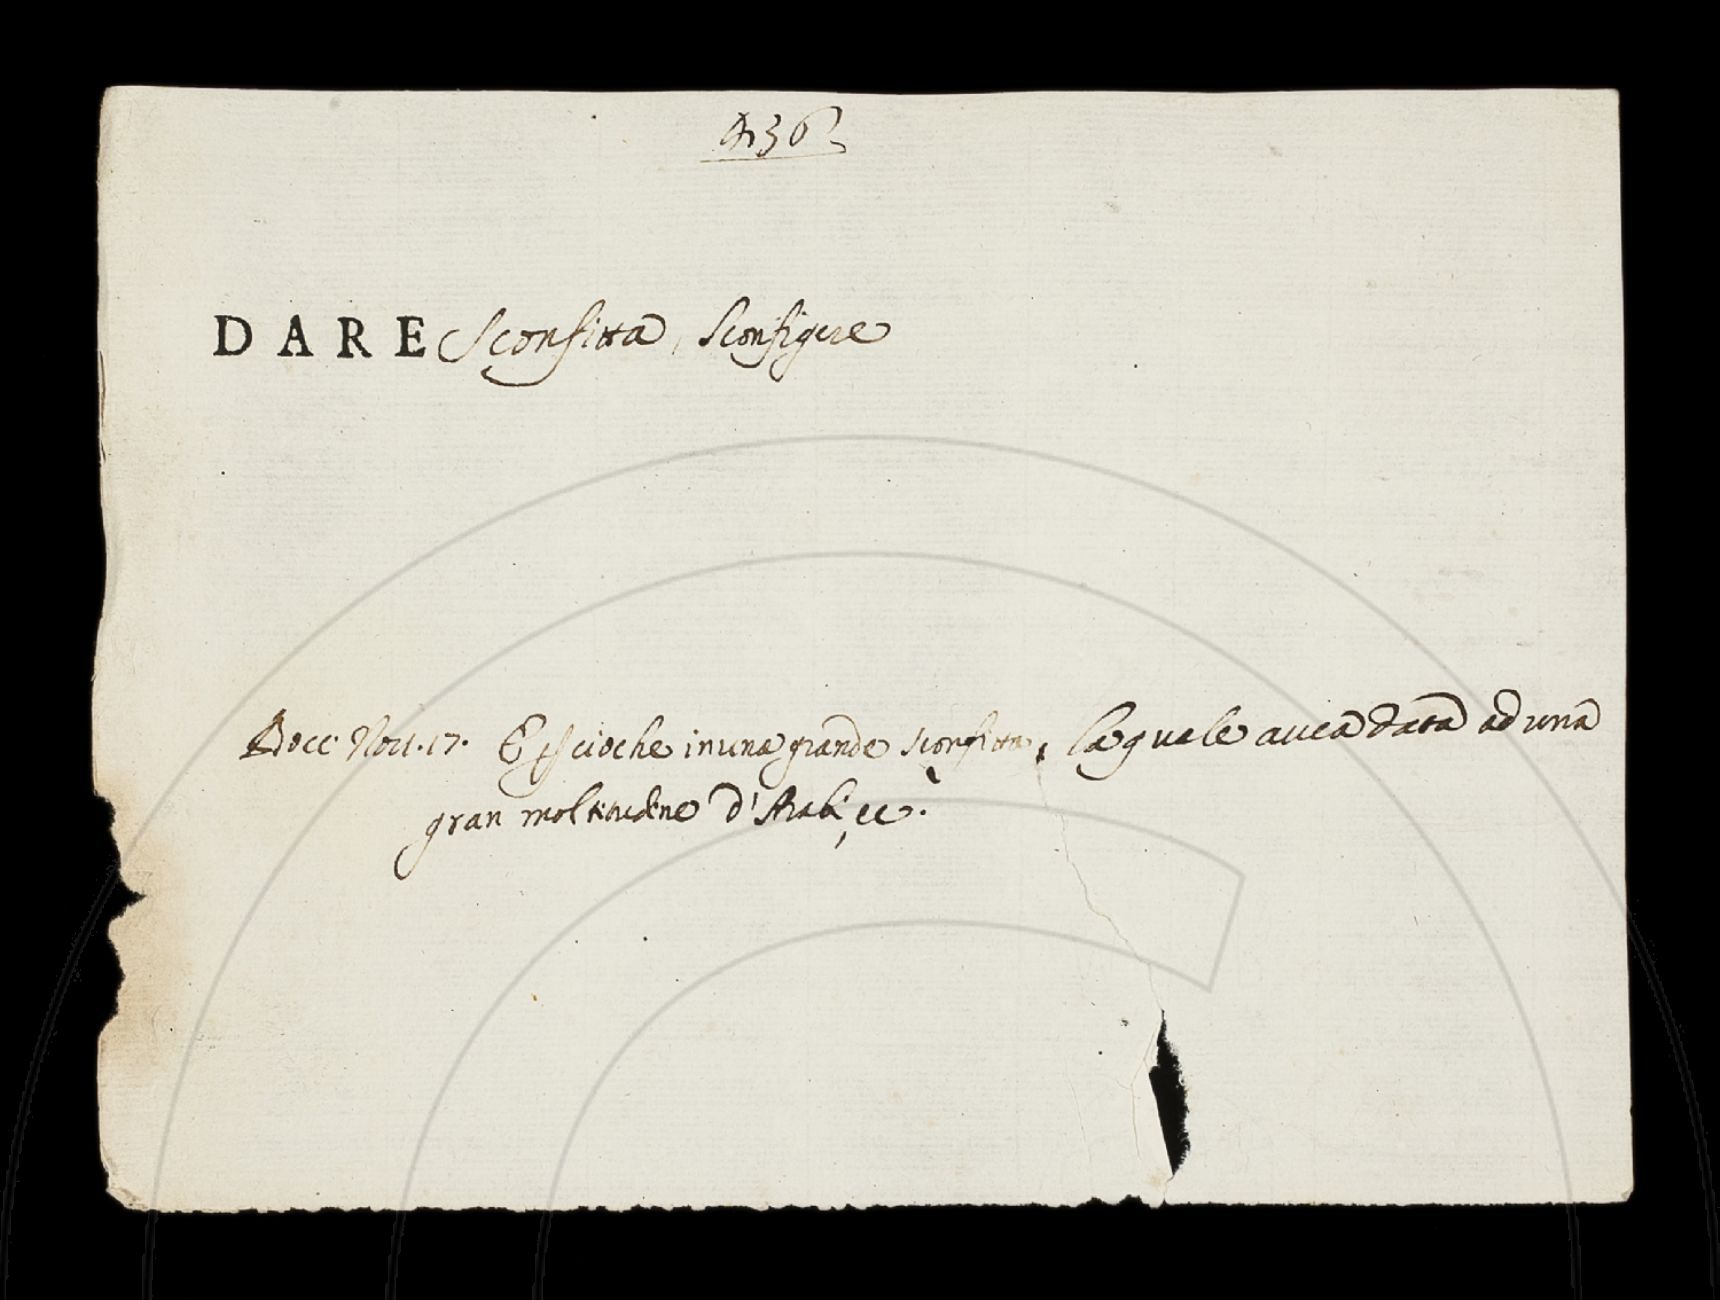 436
DARE Sconfitta, Sconfigere
Bocc. Nov. 17. E perciochè in una grande sconfitta, la quale avea data ad una
gran moltitudine d'Arabi, ec.